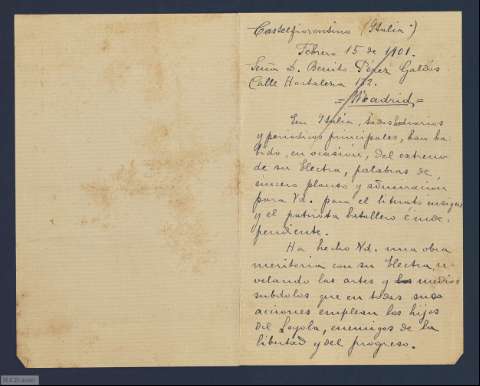 Castelfiorentino (Italia)
Febrero 15 de 1901.
Señor D. Benito Pérez Galdós
Calle Hortaleza 132.
=Madrid=
En Italia, todos diarios
y periodicos principales, han ha-
bido, en ocasión, del estreno
de su Electra, palabras de
sincero plauso y admiración
para Vd. para el literato insigne
y el patriota batallero é inde-
pendiente.
Ha hecho Vd. una obra
meritoria con su Electra, re-
velando las artes y los medios
subdolos que en todas sus
acciones emplean los hijos
del Loyola, enemigos de la
libertad y del progreso.